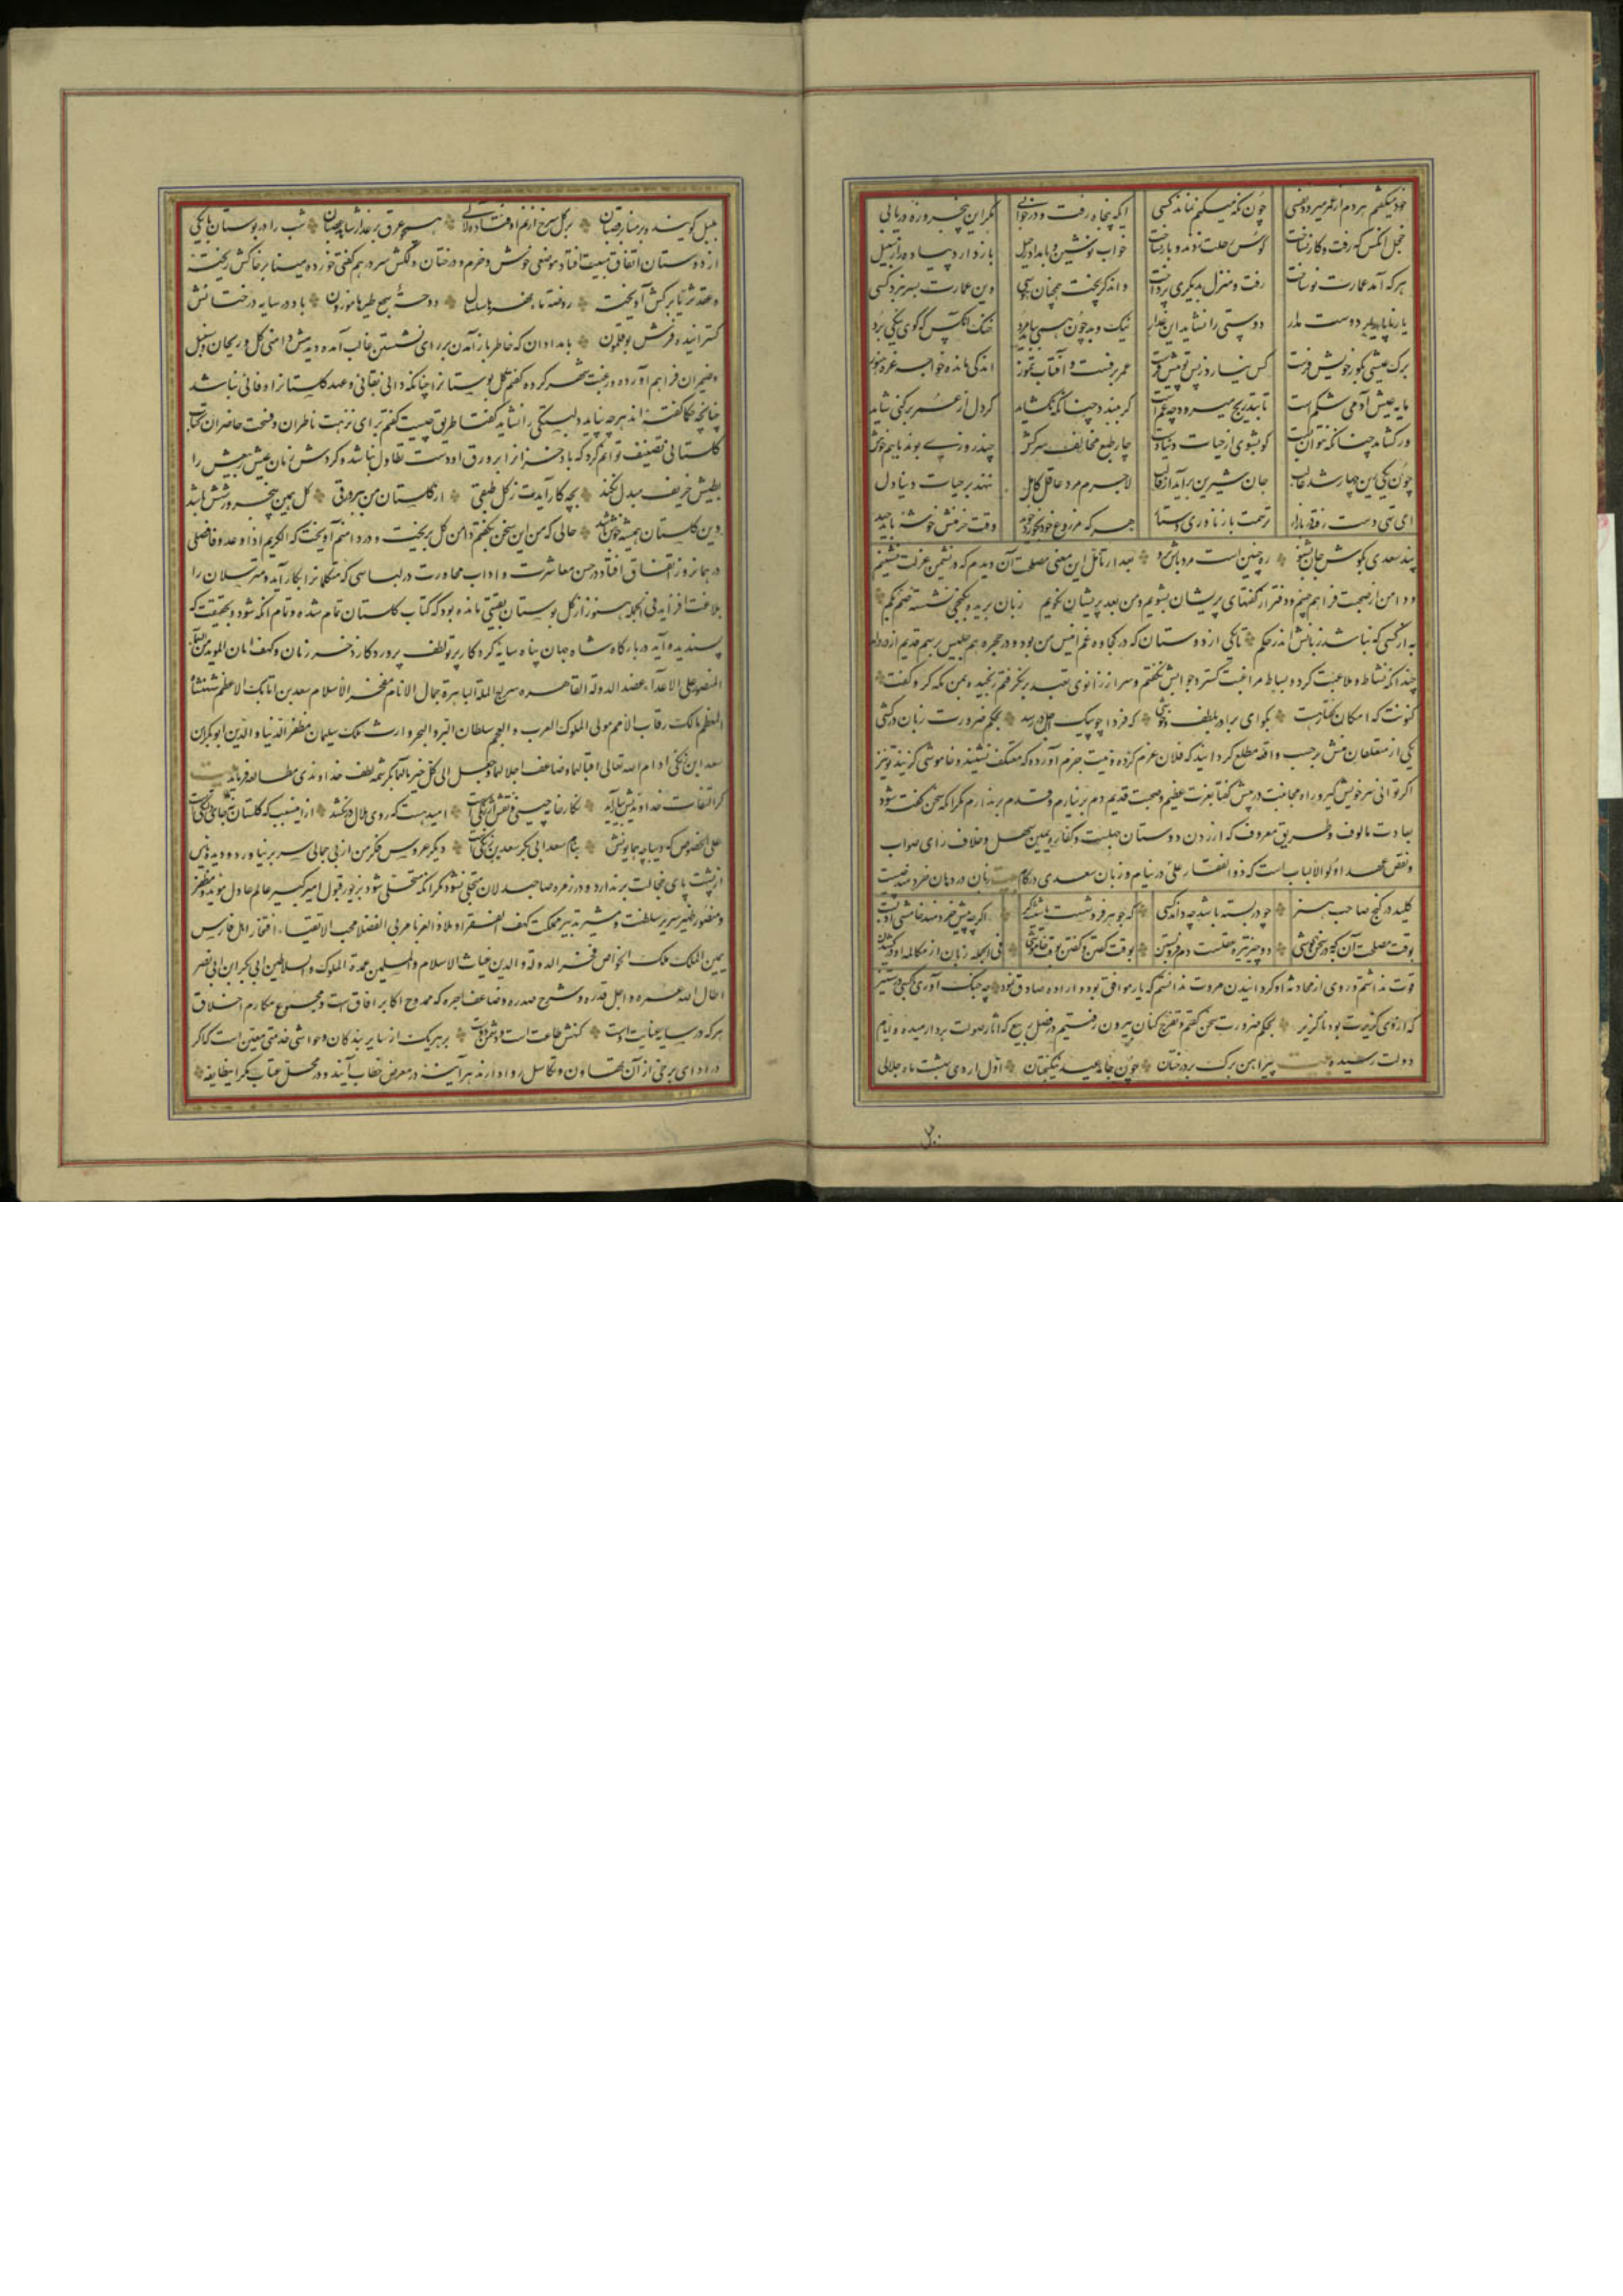 خود میکفتم هردم از عمر میرود نفسی چون نکه میکنم نماند کسی ایکه پنجاه رفت و در خوابی مکر این پنجروزه دریابی
خجل آنکس که رفت و کار نساخت کوس رحلت زدند و بار نساخت خواب نوشین بامداد رحیل باز دارد پیاده را ز سبیل
هرکه آمد عمارت نو ساخت رفت و منزل بدیکری پرداخت واندکر پخت همچنان هوسی وین عمارت بسر نبرد کسی
یار ناپایدار دوست مدار دوستی را نشاید این غدار نیک و بد چون همی بباید مرد خنک آنکس که کوی نیکی برد
برک عیشی بکور خویش فرست کس نیارد ز پس تو پیش فرست عمر برفست و آفتاب تموز اندکی مانده خواجه غره هنوز
مایه عیش آدمی شکم است تا بتدریج میرود چه غم است کر ببندد چنانکه نکشاید کر دل از عمر برکنی شاید
ور کشاید چنانکه نتوان بست کو بشوی از حیات دنیا دست چار طبع مخالف سرکش چند روزی بوند باهم خوش
چون یکی زین چهار شد غالب جان شیرین برآید از قالب لاجرم مرد عاقل کامل ننهد بر حیات دنیا دل
ای تهی دست رفته در بازار ترسمت باز ناوری دستار هرکه مزروع خود بخورد خوید وقت خرمنش خوشه باید چید
پند سعدی بکوش جان بشنو ره چنین است مرد باش و برو بعد از تأمل این معنی مصلحت آن دیدم که در نشیمن عزلت نشینم
و دامن از صحبت فراهم چینم و دفتر از کفتهای پریشان بشویم و من بعد پریشان نکویم زبان بریده بکنجی نشسته صم بکم
به از کسی که نباشد زبانش اندر حکم تا یکی از دوستان که در کجاوه غم انیس من بود و در حجره هم جلیس برسم قدیم از در درآمد
چندانکه نشاط و ملاعبت کرد و بساط مراعبت کسترد جوابش نکفتم و سر از زانوی تعبد برنکرفتم رنجیده بمن نکه کرد و کفت
کنونت که امکان کفتار هست بکوای برادر بلطف و خوشی که فردا چو پیک اجل در رسد بحکم ضرورت زبان درکشی
یکی از متعلقان منش برحسب واقعه مطلع کردانید که فلان عزم کرده و نیت جزم آورده که معتکف نشیند و خاموشی کزیند تو نیز
اکر توانی سر خویش کیر و راه مجانبت در پیش کفتا بعزت عظیم و صحبت قدیم دم برنیارم و قدم برندارم مکر انکه سخن کفته شود
بعادت مألوف و طریق معروف که آزردن دوستان جهلست و کفاره یمین سهل و خلاف رای صواب
و نقض عهد اولوالالباب است که ذوالفقار علی در نیام و زبان سعدی در کام بیت زبان در دهان خردمند چیست
کلید در کنج صاحب هنر چو در بسته باشد چه داند کسی که جوهرفروشست یا شیشه‌کر اکرچه پیش خردمند خامشی ادبست
بوقت مصلحت آن به که در سخن کوشی دو چیز تیره عقلست دم فروبستن بوقت کفتن و کفتن بوقت خاموشی فی الجمله زبان از مکالمه او درکشیدن
قوت نداشتم و روی از محادثه او کردانیدن مروت ندانستم که یار موافق بود و اراده صادق نمود چو جنک آوری با کسی در ستیز
که از وی کزیرت بود ناکزیر بحکم ضرورت سخن کفتم و تفرج کنان بیرون رفتیم در فصل ربیع که آثار صولت برد آرمیده و ایام
دولت رسیده بیت پیراهن برک بر درختان چون جامه عید نیکبختان اول اردی بهشت ماه جلالی
بلبل کوینده بر منابر قضبان بر کل سرخ از نم اوفتاده لآلی همچو عرق بر عذار شاهد غضبان شب را در بوستان با یکی
از دوستان اتفاق مبیت افتاد موضعی خوش و خرم و درختان دلکش سر درهم کفتی خورده مینا بر خاکش ریخته
و عقد ثریا بر کش آویخته روضة ماء نهرها سلسال دوحة سجع طیرها موزون باد در سایه درختانش
کسترانیده فرش بوقلمون بامدادان که خاطر باز آمدن بر رای نشستن غالب آمد دیدمش دامنی کل و ریحان و سنبل
و ضیمران فراهم آورده و رغبت شهر کرده کفتم کل بوستانرا چنانکه دانی بقائی و عهد کلستانرا وفائی نباشد
چنانچه حکما کفته‌اند هرچه نپاید دلبستکی را نشاید کفتا طریق چیست کفتم برای نزهت ناظران و فسحت حاضران کتاب
کلستانی تصنیف توانم کرد که باد خزانرا بر ورق او دست تطاول نباشد و کردش زمان عیش ربیعش را
بطیش خریف مبدل نکند بچه کار آیدت ز کل طبقی از کلستان من ببر ورقی کل همین پنجروز و شش باشد
وین کلستان همیشه خوش باشد حالی که من این سخن بکفتم دامن کل بریخت و در دامنم آویخت که الکریم اذا وعد وفا فصلی
در همانروز اتفاق افتاد در حسن معاشرت و آداب محاورت در لباسی که متکلمانرا بکار آید و مترسلان را
بلاغت افزاید فی الجمله هنوز از کل بوستان بقیتی مانده بود که کتاب کلستان تمام شده و تمام آنکه شود بحقیقت که
پسندیده آید در بارکاه شاه جهان پناه سایه کردکار پرتو لطف پروردکار ذخر زمان و کهف امان المؤید من السماء
المنصور علی الاعداء عضد الدولة القاهره سراج الملة الباهرة جمال الانام مفخر الاسلام سعد بن اتابک الاعظم شهنشاه
المعظم مالک رقاب الامم مولی الملوک العرب والعجم سلطان البر والبحر وارث ملک سلیمان مظفر الدنیا والدین ابوبکر بن
سعد بن زنکی ادام الله تعالی اقبالهما وضاعف اجلالهما وجعل الی کل خیر مآلهما بکرشمه لطف خداوندی مطالعه فرماید بیت
کر التفات خداوندیش بیاراید نکارخانه چینی و نقش ارتنکیست امید هست که روی ملال درنکشد ازین سبب که کلستان نه جای دلتنکیست
علی الخصوص که دیباچه همایونش بنام سعد ابی بکر سعد بن زنکیست دیکر عروس فکر من از بی جمالی سر برنیاورد و دیده یأس
از پشت پای خجالت برندارد و در زمره صاحبدلان متجلی نشود مکر آنکه متحلی شود بزیور قبول امیر کبیر عالم عادل مؤید مظفر
و منصور ظهیر سریر سلطنت و مشیر تدبیر مملکت کهف الفقرا و ملاذ الغربا مربی الفضلا محب الاتقیاء افتخار اهل فارس
یمین الملک ملک الخواص فخر الدوله والدین غیاث الاسلام والمسلمین عمدة الملوک والسلاطین ابی بکر ابن ابی نصر
اطال الله عمره و اجل قدره و شرح صدره و ضاعف اجره که ممدوح اکابر آفاق است و مجموع مکارم اخلاق
هرکه در سایه عنایت اوست کنهش طاعت است و دشمن دوست بر هریک از سایر بندکان و حواشی خدمتی معین است که اکر
در ادای برخی از آن تهاون و تکاسل روا دارند هرآینه در معرض خطاب آیند و در محل عتاب مکر این طایفه